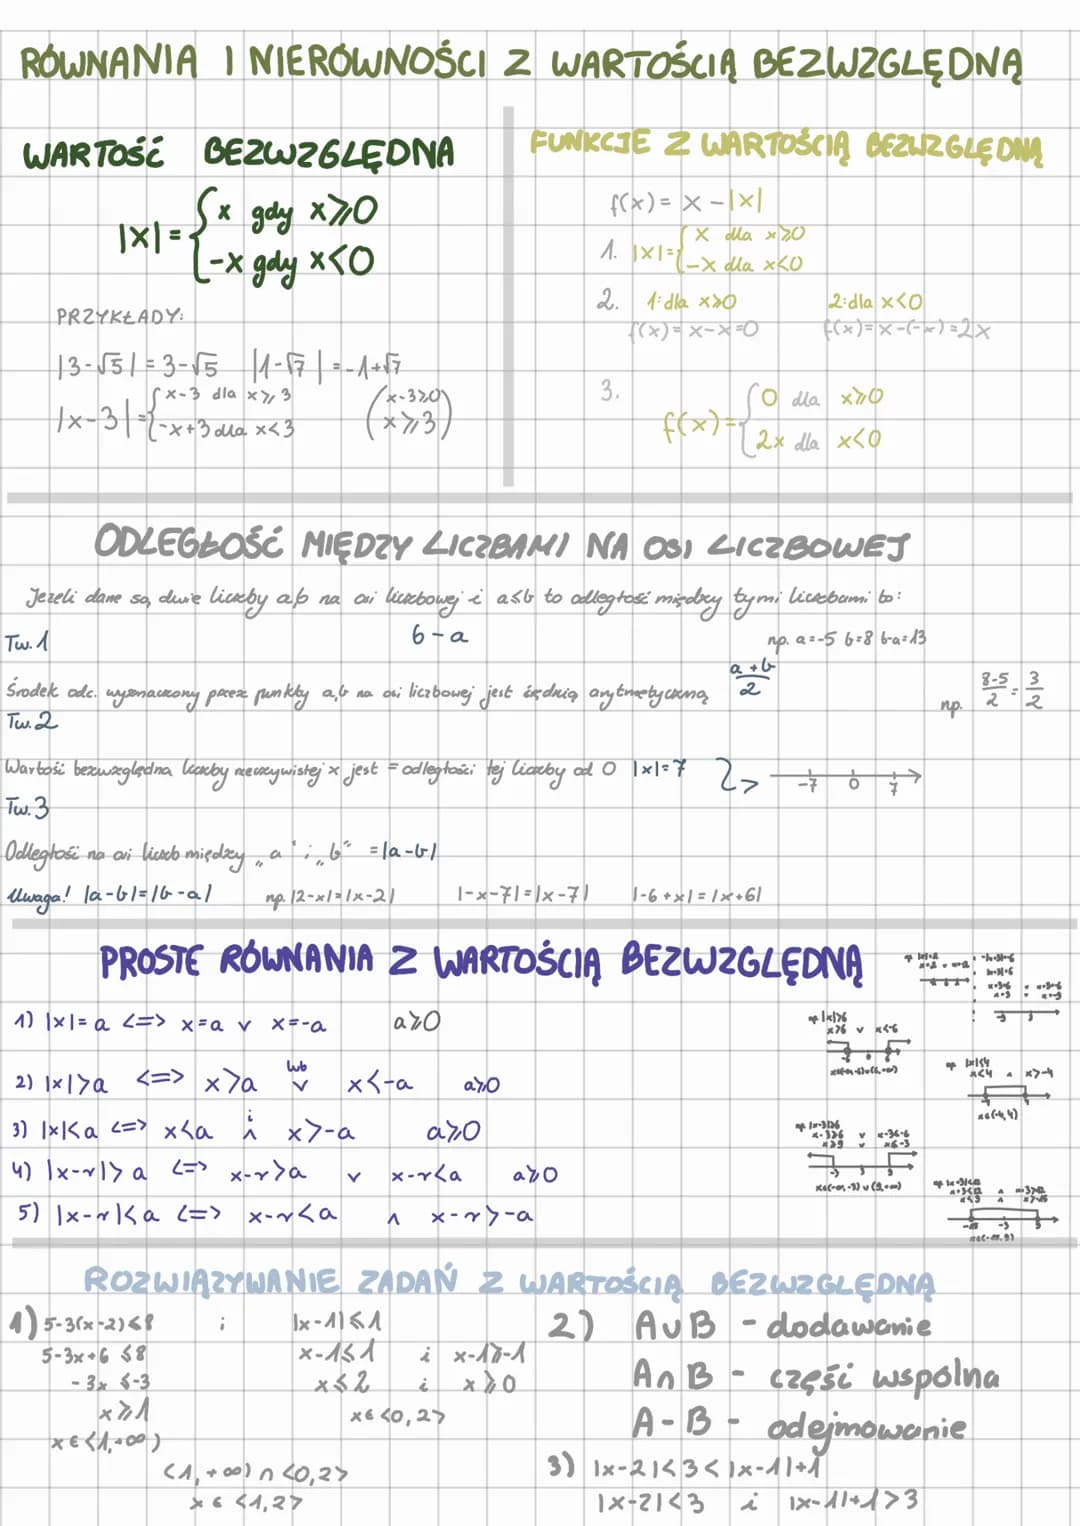 RÓWNANIA I NIERÓWNOŚCI Z WARTOŚCIĄ BEZWZGLĘDNĄ
WARTOŚĆ BEZWZGLĘDNA
|x|={x gdy x⩾0
-x gdy x<0
PRZYKŁADY:
|3-√5|=3-√5 |1-√7|=-1+√7
|x-3|={x-3 dla x⩾3
-x+3 dla x<3
(x-3⩾0
x⩾3)
FUNKCJE Z WARTOŚCIĄ BEZWZGLĘDNĄ
f(x)= x-|x|
1. |x|={x dla x⩾0
-x dla x<0
2. 1:dla x⩾0 2:dla x<0
f(x)=x-x=0 f(x)=x-(-x)=2x
3. f(x)={0 dla x⩾0
2x dla x<0
ODLEGŁOŚĆ MIĘDZY LICZBAMI NA OSI LICZBOWEJ
Jeżeli dane są dwie liczby a,b na osi liczbowej i a≤b to odległość między tymi liczbami to:
Tw.1 b-a np. a=-5 b=8 b-a=13
Środek odc. wyznaczony przez punkty a,b na osi liczbowej jest średnią arytmetyczną a+b/2 np. 8-5/2=3/2
Tw.2
Wartość bezwzględna liczby rzeczywistej x jest = odległości tej liczby od 0 |x|=7 -7 0 7
Tw.3
Odległość na osi liczb między „a" i „b" =|a-b|
Uwaga! |a-b|=|b-a| np. |2-x|=|x-2| |-x-7|=|x-7| |-6+x|=|x+6|
PROSTE RÓWNANIA Z WARTOŚCIĄ BEZWZGLĘDNĄ
1) |x|=a <=> x=a v x=-a a⩾0
2) |x|>a <=> x>a lub v x<-a a⩾0
3) |x|<a <=> x<a i ∧ x>-a a⩾0
4) |x-r|>a <=> x-r>a v x-r<a a⩾0
5) |x-r|<a <=> x-r<a ∧ x-r>-a
np |x|>6
x>6 v x<-6
np |x|≤4
x<4 ∧ x>-4
x∈(-4,4)
ROZWIĄZYWANIE ZADAŃ Z WARTOŚCIĄ BEZWZGLĘDNĄ
1) 5-3(x-2)≤8 i |x-1|≤1
5-3x+6 ≤8 x-1≤1 i x-1⩾-1
-3x ≤-3 x≤2 i x⩾0
x⩾1 x∈<0,2>
x∈<1,+∞)
<1,+∞)∩<0,2>
x∈<1,2>
2) A∪B - dodawanie
A∩B - część wspólna
A-B - odejmowanie
3) |x-2|<3<|x-1|+1
|x-2|<3 i |x-1|+1>3